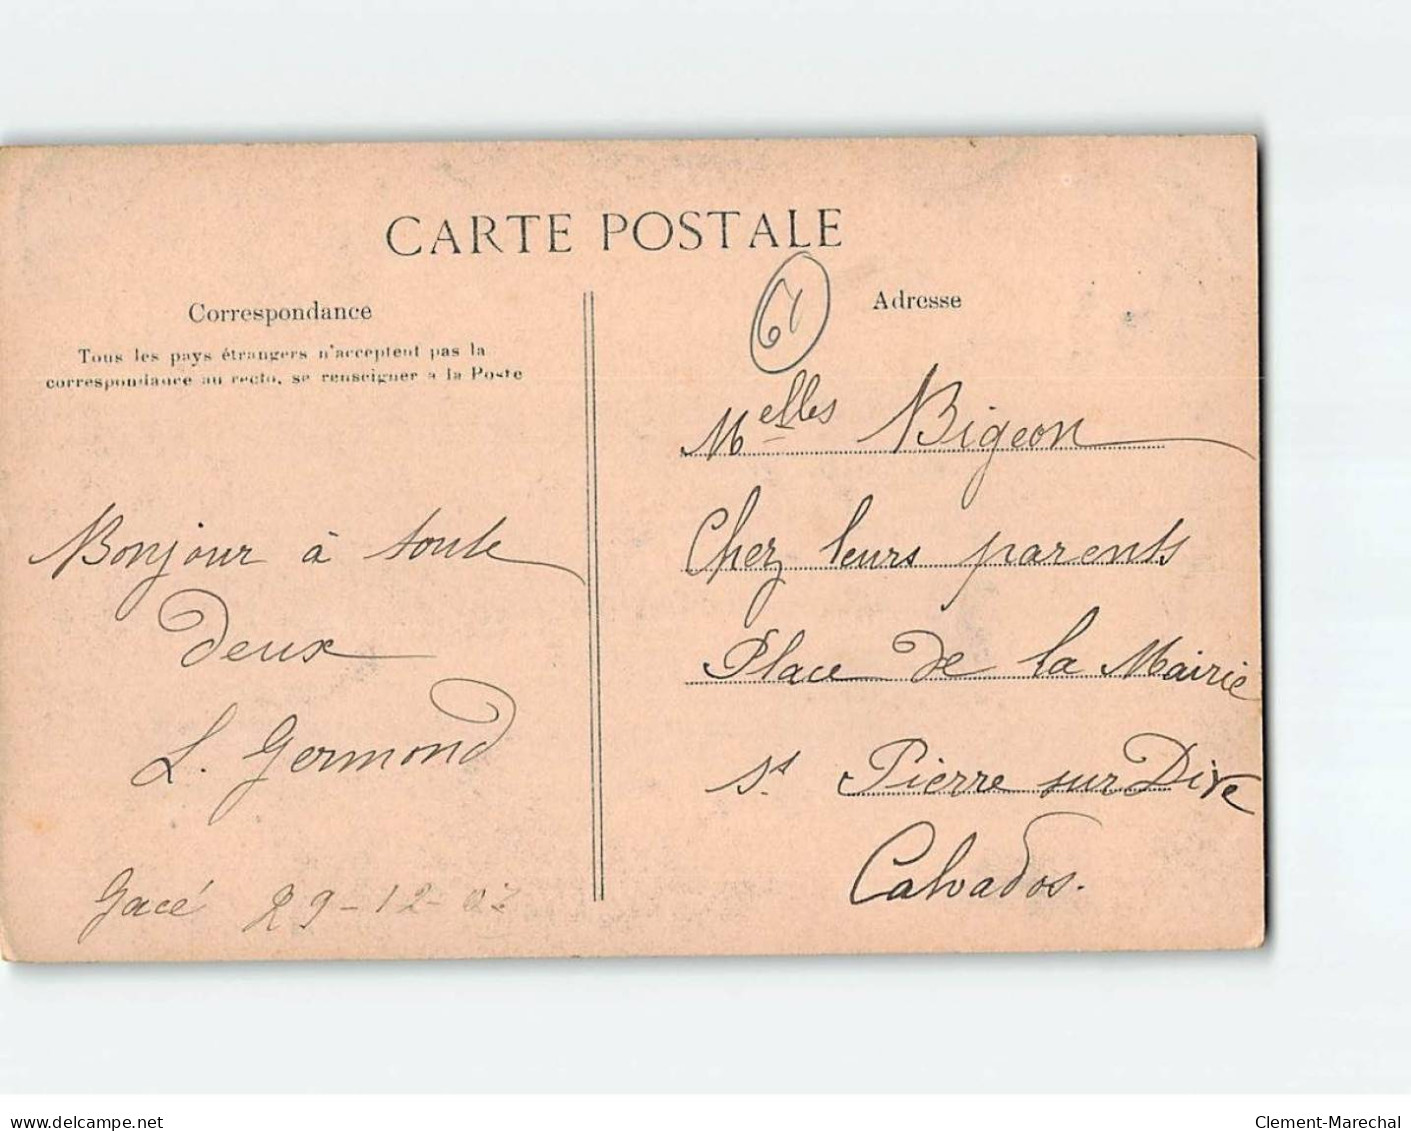 CARTE POSTALE
Correspondance
Tous les pays étrangers n'acceptent pas la
correspondance au recto, se renseigner à la Poste
Bonjour à toute
deux
L. Germond
Gacé 29-12-07
61
Adresse
Melles Bigeon
Chez leurs parents
Place de la Mairie
St Pierre sur Dive
Calvados.
www.delcampe.net
Clement-Marechal